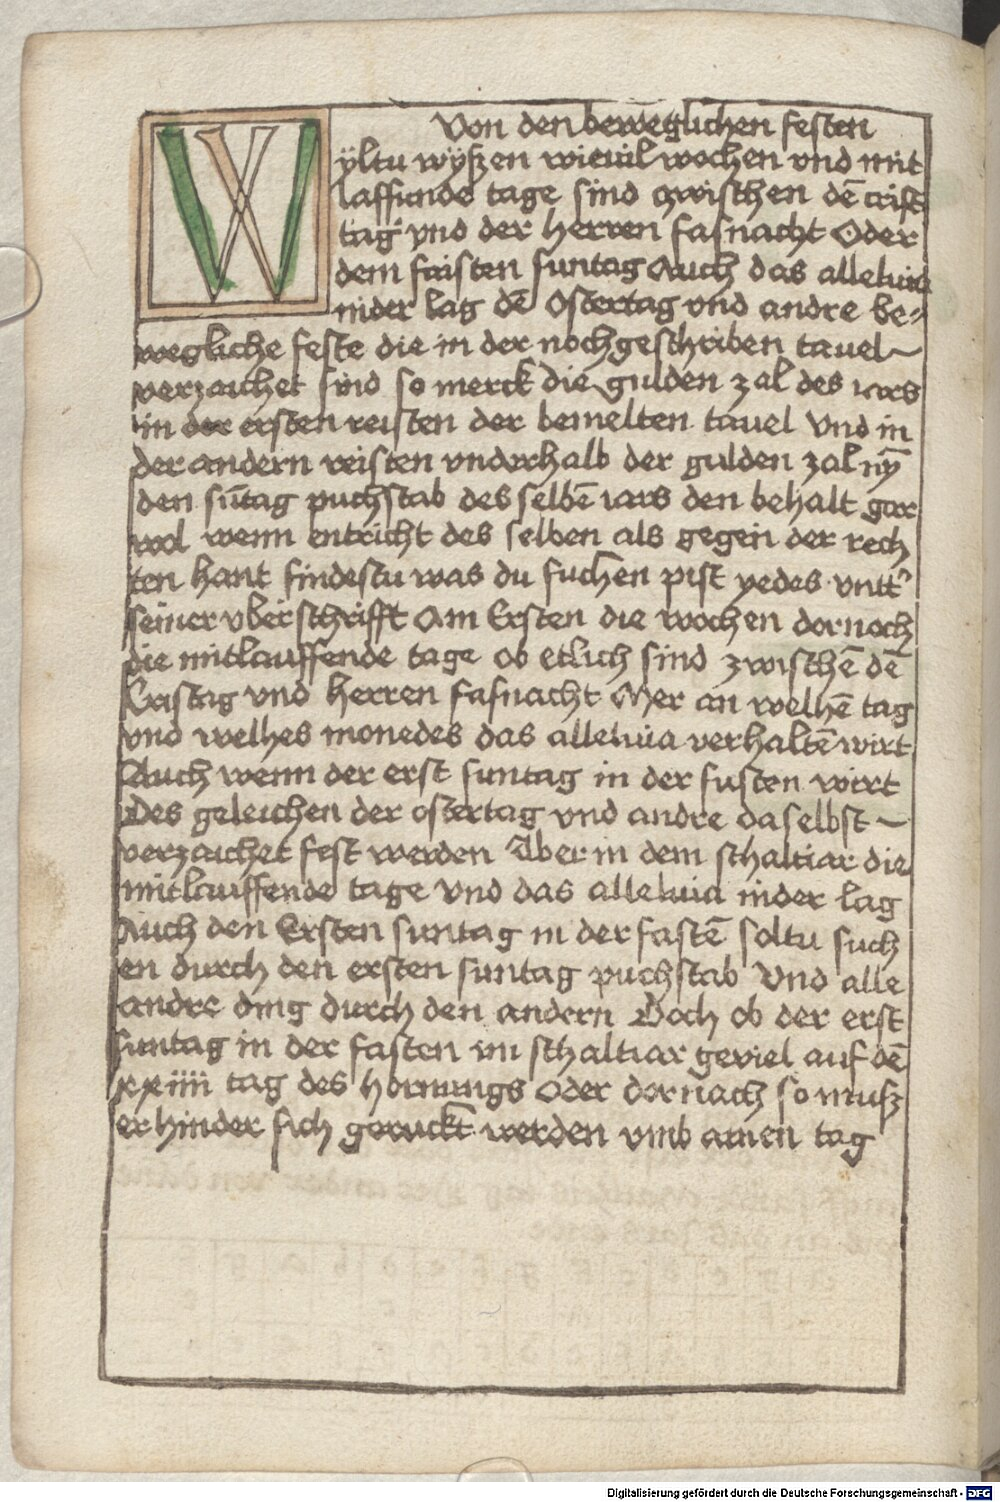 Von den beweglichen festen
Wyltu wyszen wieuil wochen vnd mit
lauffunde tage sind zwischen dē crist
tag vnd der herren fasnacht Oder
dem fristen suntag Auch das alleluia
nider lag dē Ostertag vnd andre be⸗
wegliche feste die in der nochgeschriben tauel
verzaichet sind so merck die gulden zal des iars
in der ersten reisten der bemelten tauel Vnd in
der andern reisten vnderhalb der gulden zal nȳ
den sūtag puchstab des selbē iars den behalt gar
wol wenn entricht des selben als gegen der rech
ten hant findestu was du suchen pist yedes vntt'
seiner vberschrifft Am Ersten die wochen dornoch
die mitlauffende tage ob etlich sind zwischē dē
Cristag vnd herren fasnacht Mer an welhē tag
vnd welhes monedes das alleluia verhaltē wirt
Auch wenn der erst suntag in der fasten wirt
Des geleichen der ostertag vnd andre daselbst
verzaichet fest werden Aber in dem schaltiar die
mitlauffende tage vnd das alleluia nider lag
Auch den Ersten suntag in der fastē soltu such
en durch den ersten suntag puchstab Vnd alle
andre ding durch den andern Doch ob der erst
suntag in der fasten im schaltiar geviel auf dē
xxiiii tag des hornungs Oder dornach so musz
er hinder sich geruckt werden vmb ainen tag
Digitalisierung gefördert durch die Deutsche Forschungsgemeinschaft - DFG